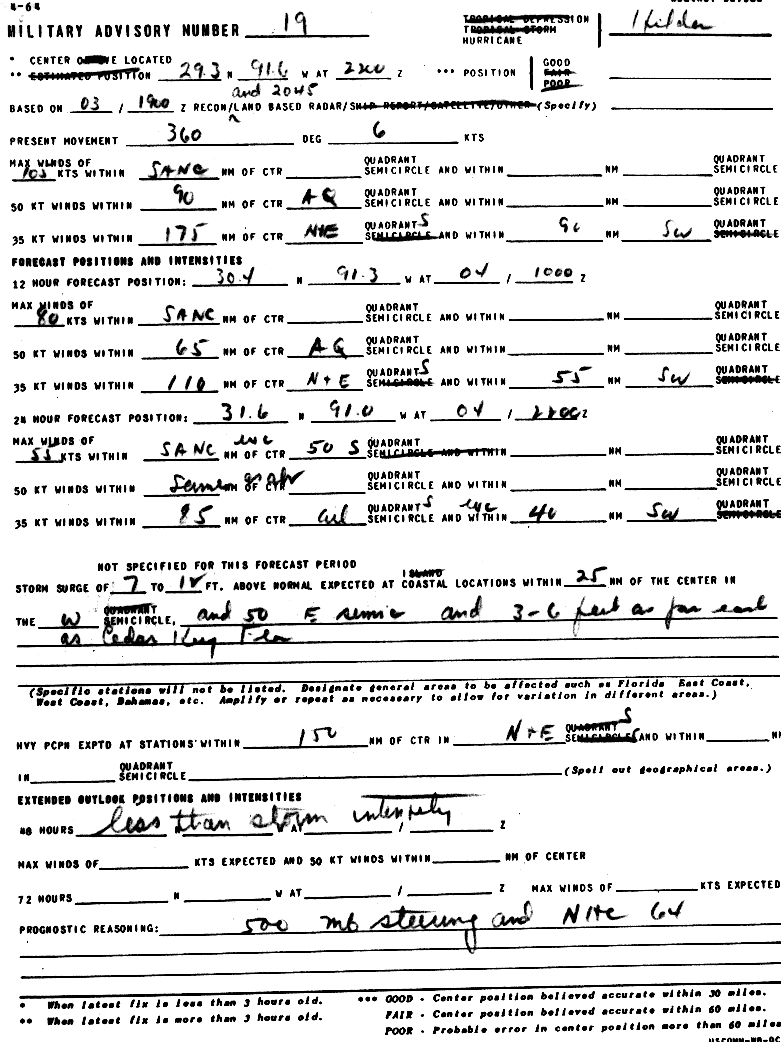 4-64
MILITARY ADVISORY NUMBER 19 TROPICAL DEPRESSION TROPICAL STORM HURRICANE Hilda
* CENTER LOCATED
** ESTIMATED POSITION 29.3 N 91.6 W AT 2200 Z *** POSITION GOOD FAIR POOR
and 2045
BASED ON 03 / 1900 Z RECON/LAND BASED RADAR/SHIP REPORT/SATELLITE/OTHER (Specify)
PRESENT MOVEMENT 360 DEG 6 KTS
MAX WINDS OF 105 KTS WITHIN SANC NM OF CTR QUADRANT SEMICIRCLE AND WITHIN NM QUADRANT SEMICIRCLE
50 KT WINDS WITHIN 90 NM OF CTR AQ QUADRANT SEMICIRCLE AND WITHIN NM QUADRANT SEMICIRCLE
35 KT WINDS WITHIN 175 NM OF CTR N+E QUADRANTS SEMICIRCLE AND WITHIN 90 NM SW QUADRANT SEMICIRCLE
FORECAST POSITIONS AND INTENSITIES
12 HOUR FORECAST POSITION: 30.4 N 91.3 W AT 04 / 1000 Z
MAX WINDS OF 80 KTS WITHIN SANC NM OF CTR QUADRANT SEMICIRCLE AND WITHIN NM QUADRANT SEMICIRCLE
50 KT WINDS WITHIN 65 NM OF CTR AQ QUADRANT SEMICIRCLE AND WITHIN NM QUADRANT SEMICIRCLE
35 KT WINDS WITHIN 110 NM OF CTR N+E QUADRANTS SEMICIRCLE AND WITHIN 55 NM SW QUADRANT SEMICIRCLE
24 HOUR FORECAST POSITION: 31.6 N 91.0 W AT 04 / 2200 Z
MAX WINDS OF 55 KTS WITHIN SANC NM OF CTR 50 S QUADRANT SEMICIRCLE AND WITHIN NM QUADRANT SEMICIRCLE
50 KT WINDS WITHIN NM OF CTR QUADRANT SEMICIRCLE AND WITHIN NM QUADRANT SEMICIRCLE
35 KT WINDS WITHIN 85 NM OF CTR QUADRANTS SEMICIRCLE AND WITHIN 40 NM SW QUADRANT SEMICIRCLE
NOT SPECIFIED FOR THIS FORECAST PERIOD
STORM SURGE OF 7 TO 12 FT. ABOVE NORMAL EXPECTED AT ISLAND COASTAL LOCATIONS WITHIN 25 NM OF THE CENTER IN
THE W QUADRANT SEMICIRCLE, and 50 E semic and 3-6 feet as far east
as Cedar Key Fla
(Specific stations will not be listed. Designate general areas to be affected such as Florida East Coast,
West Coast, Bahamas, etc. Amplify or repeat as necessary to allow for variation in different areas.)
HVY PCPN EXPTD AT STATIONS WITHIN 150 NM OF CTR IN N+E QUADRANTS SEMICIRCLES AND WITHIN
IN QUADRANT SEMICIRCLE (Spell out geographical areas.)
EXTENDED OUTLOOK POSITIONS AND INTENSITIES
48 HOURS less than storm intensity / Z
MAX WINDS OF KTS EXPECTED AND 50 KT WINDS WITHIN NM OF CENTER
72 HOURS N W AT / Z MAX WINDS OF KTS EXPECTED
PROGNOSTIC REASONING: 500 mb steering and NHC 64
* When latest fix is less than 3 hours old. *** GOOD - Center position believed accurate within 30 miles.
** When latest fix is more than 3 hours old. FAIR - Center position believed accurate within 60 miles.
POOR - Probable error in center position more than 60 miles
USCOMM-WB-DC